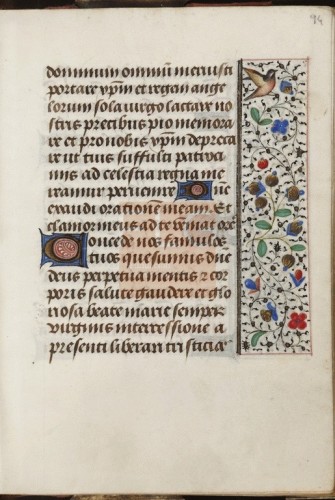 94
dominum omniū meruisti
portare xp̄m et regem ange
lorum sola uirgo lactare no
stris precibus pio memora
re et pro nobis xp̄m depreca
re ut tuis suffulti patroci
niis ad celestia regna me
reamur peruenire Dn̄e
exaudi orationem meam. Et
clamor meus ad te veniat orō
Concede nos famulos
tuos quesumus dn̄e
deus perpetua mentis ⁊ cor
poris salute gaudere et glo
riosa beate marie semper
virginis intercessione a
presenti liberari tristicia